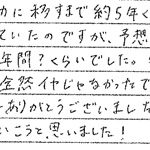 カに移すまで約5年く
ていたのですが、予想
年間?くらいでした。
全然イヤじゃなかったで
ーありがとうございました
いこうと思いました!